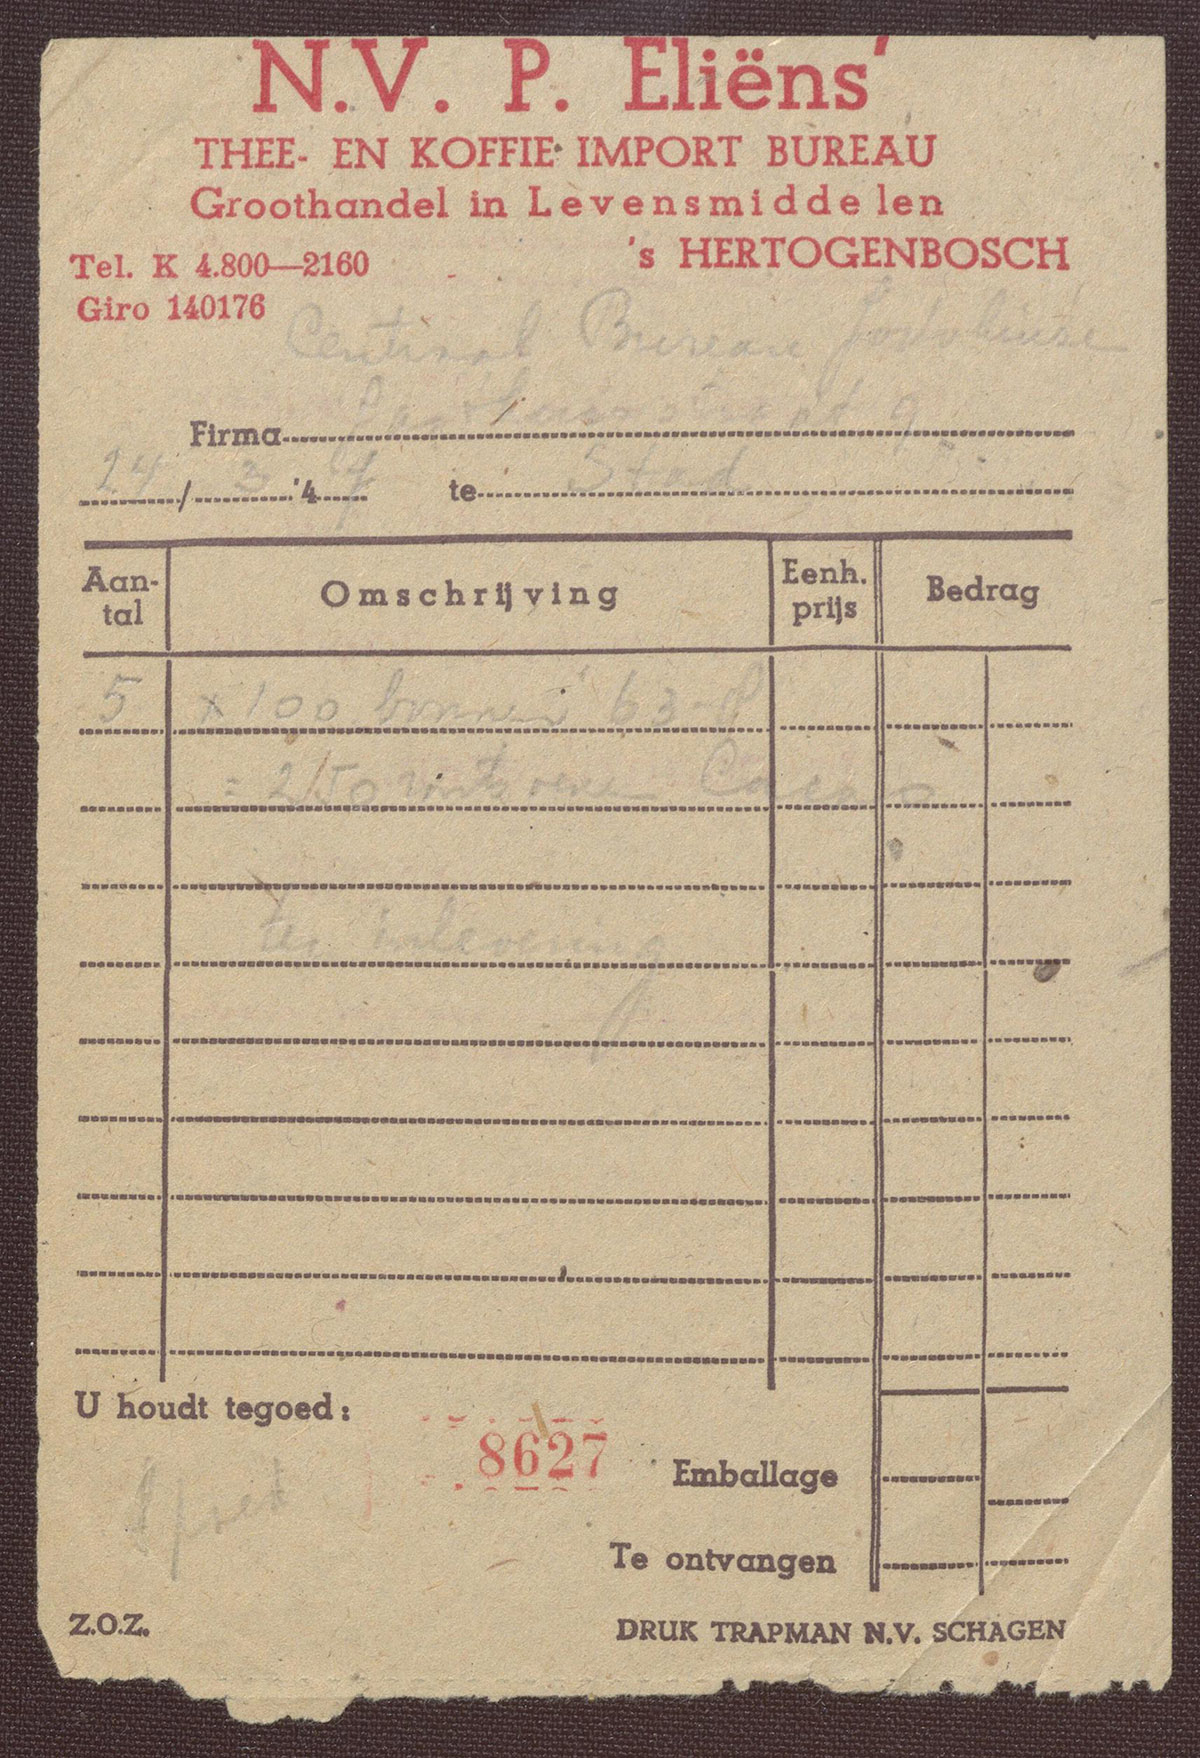 N.V. P. Eliëns'
THEE- EN KOFFIE IMPORT BUREAU
Groothandel in Levensmiddelen
's HERTOGENBOSCH
Tel. K 4.800—2160
Giro 140176
Centraal Bureau
Firma
24/3 '47 te Stad
Aan-
tal
Omschrijving
Eenh.
prijs
Bedrag
5 x 100 bonnen 63-8
= 250 Cacao
ter inlevering
U houdt tegoed:
8627
Emballage
Te ontvangen
Z.O.Z.
DRUK TRAPMAN N.V. SCHAGEN